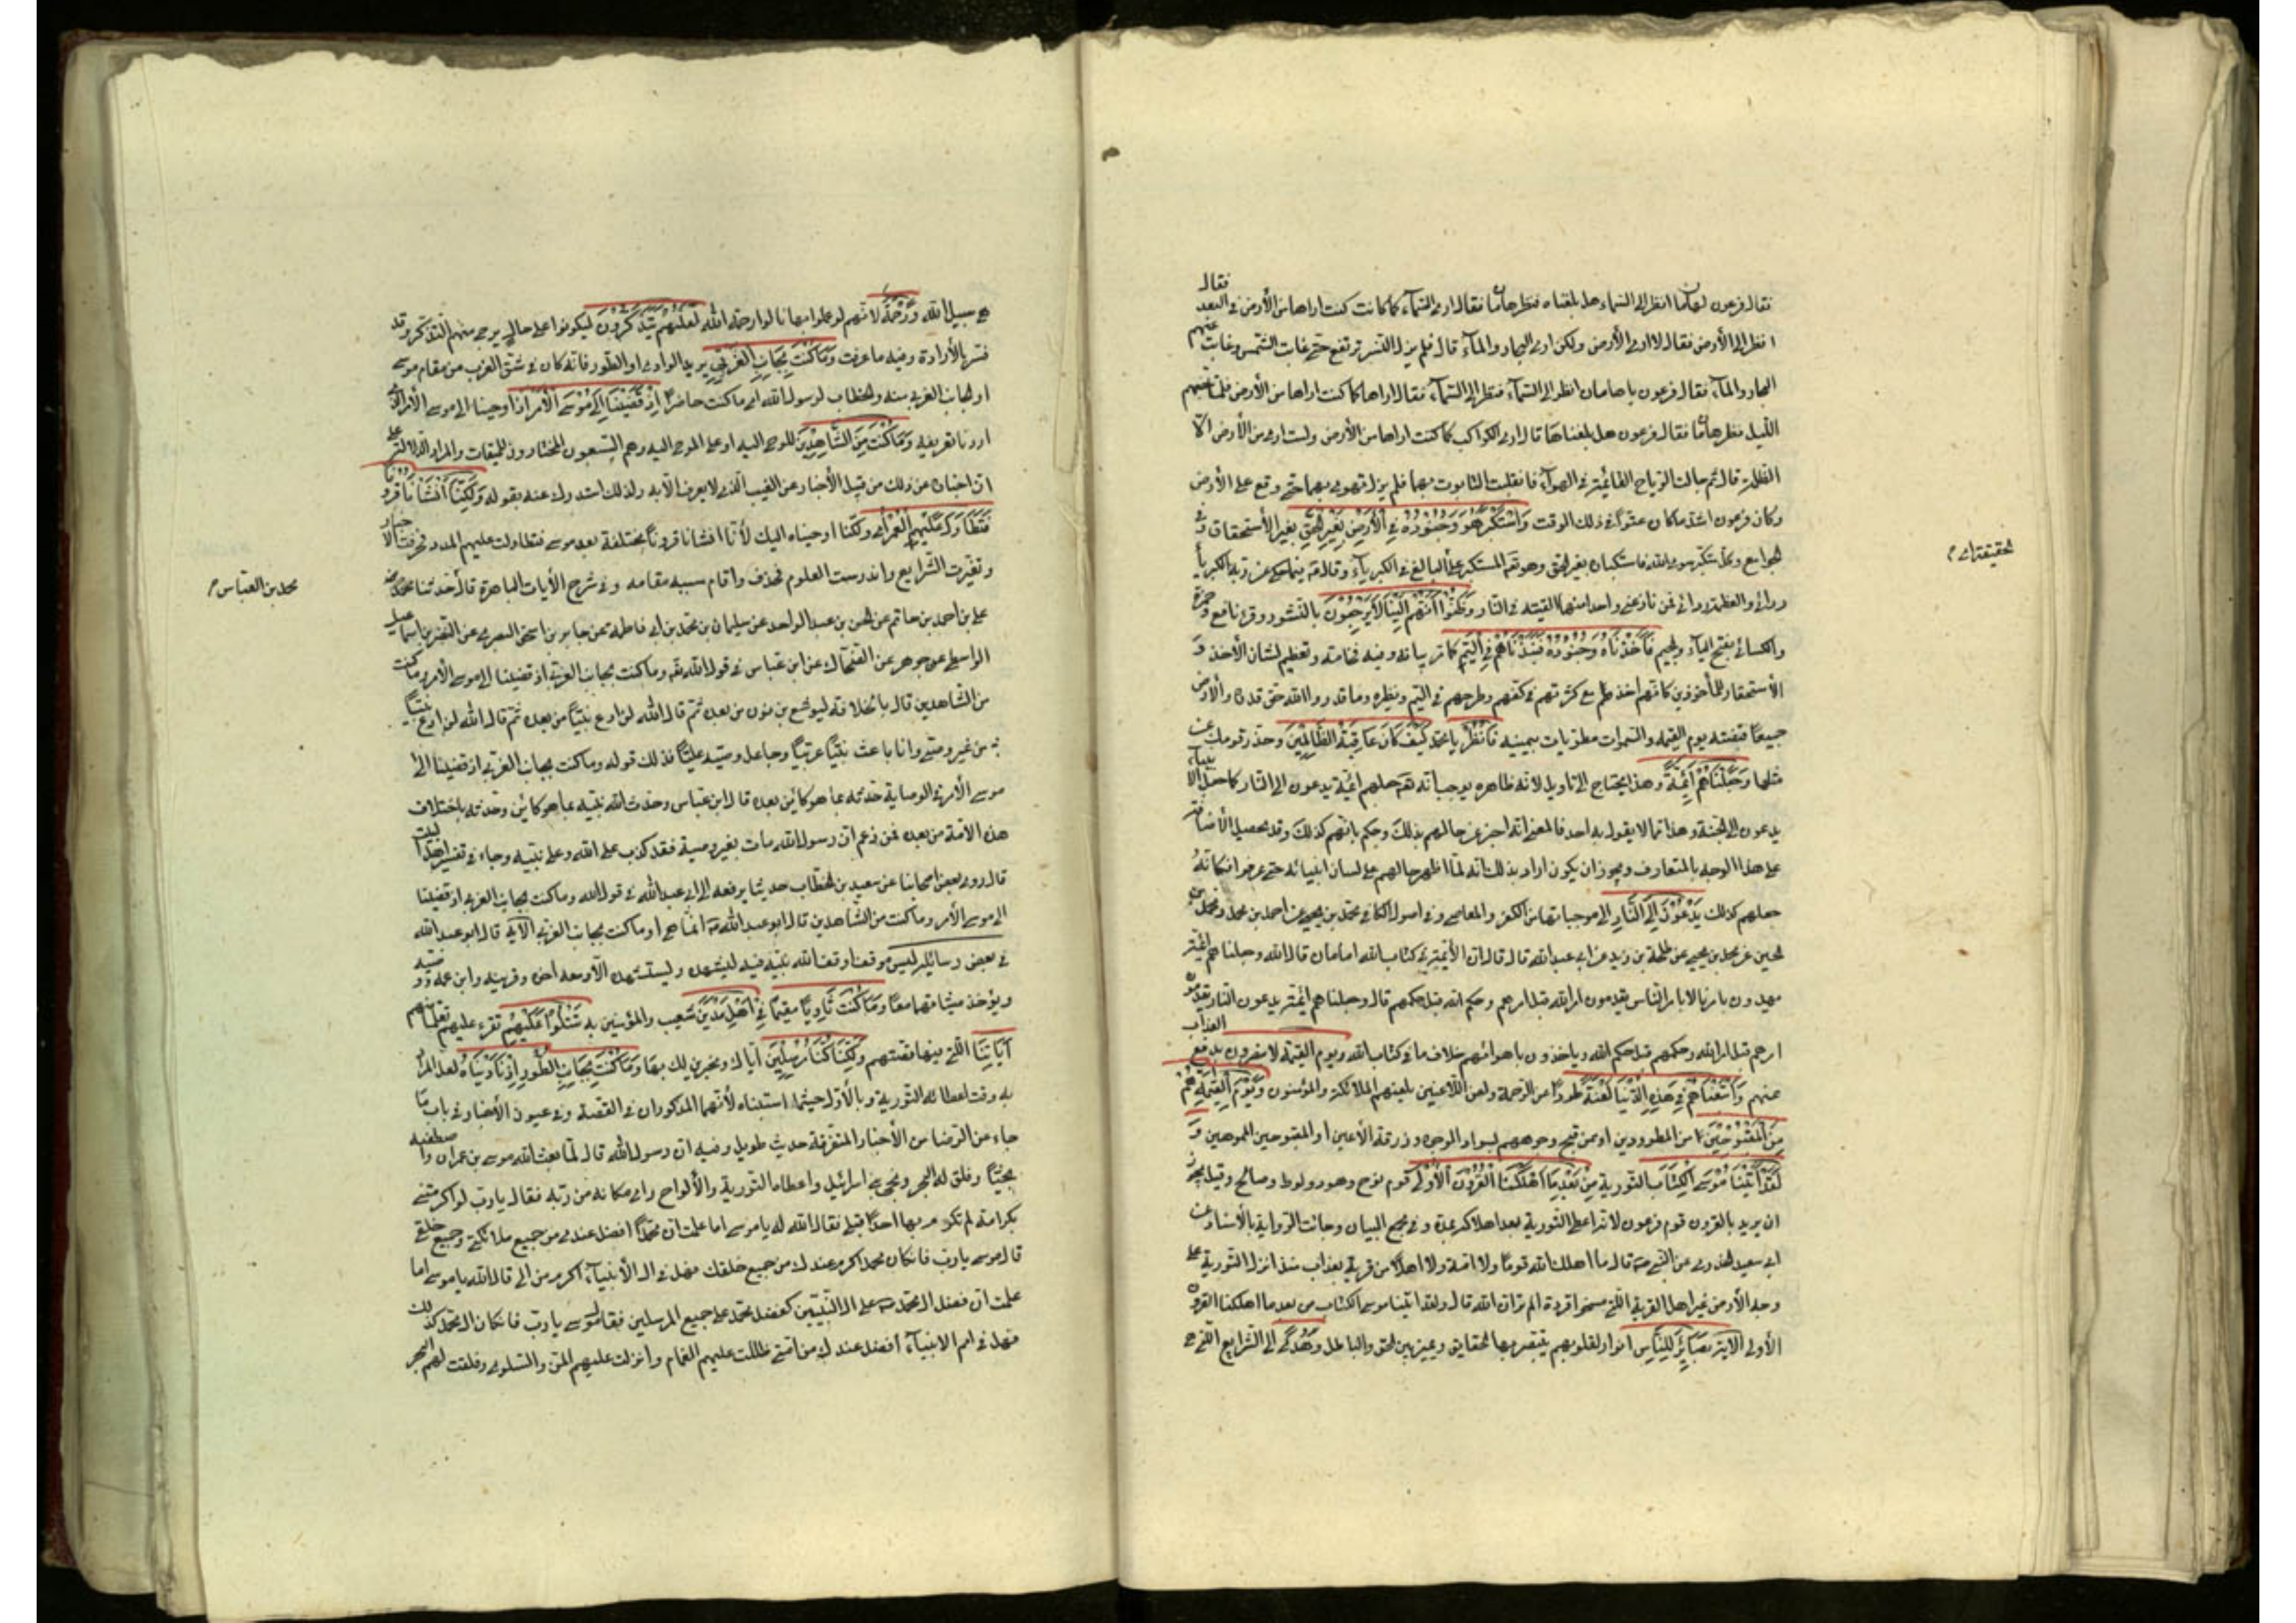 فقال فرعون لهامان انظر الى السماء هل بلغناه فنظر هامان فقال ارى السماء كما كانت كنت اراها من الأرض في البعد فقال
انظر الى الأرض فقال لا ارى الأرض ولكن ارى البحار والماء قال فلم يزل النسر ترتفع حتى غابت الشمس وغابت عنهم
البحار والماء فقال فرعون يا هامان انظر الى السماء فنظر الى السماء فقال اراها كما كنت اراها من الأرض فلما جنهم
الليل نظر هامان فقال فرعون هل بلغناها قال ارى الكواكب كما كنت اراها من الأرض ولست ارى من الأرض الا
الظلمة قال ثم جالت الرياح القائمة في الهواء فانقلبت التابوت بهما فلم يزل تهوى بهما حتى وقع على الأرض
وكان فرعون اشد ما كان عتوا في ذلك الوقت وَاسْتَكْبَرَ هُوَ وَجُنُودُهُ فِي الْأَرْضِ بِغَيْرِ الْحَقِّ بغير الأستحقاق وفي
الجوامع وكل مستكبر سوى الله فاستكباره بغير الحق وهو تع المستكبر على البالغ في الكبرياء وقال فيما حكى عن ربه الكبرياء
ردائي والعظمة ازاري فمن نازعني واحدا منهما القيته في النار وَظَنُّوا أَنَّهُمْ إِلَيْنَا لَا يُرْجَعُونَ بالنشور وقرء نافع وحمزة
والكسائي بفتح الياء والجيم فَأَخَذْنَاهُ وَجُنُودَهُ فَنَبَذْنَاهُمْ فِي الْيَمِّ كما مر بيانه وفيه فخامة وتعظيم لشان الأخذ و
الأستحقار للمأخوذين كانه اخذهم مع كثرتهم في كف وطرحهم في اليم ونظيره وما قدروا الله حق قدره والأرض
جميعا قبضته يوم القيمة والسموات مطويات بيمينه فَانْظُرْ يا محمد كَيْفَ كَانَ عَاقِبَةُ الظَّالِمِينَ وحذر قومك عن
مثلها وَجَعَلْنَاهُمْ أَئِمَّةً وهذا يحتاج الى تاويل لانه ظاهره يوجب انه تع جعلهم ائمة يدعون الى النار كما جعل الانبياء
يدعون الى الجنة وهذا مما لا يقول به احد فالمعنى انه اخبر عن حالهم بذلك وحكم بانهم كذلك وقد يحصل الأضافة
على هذا الوجه بالمتعارف ويجوز ان يكون اراد بذلك انه لما اظهر حالهم على لسان انبيائه حتى عرفوا فكانه
جعلهم كذلك يَدْعُونَ إِلَى النَّارِ الى موجباتها من الكفر والمعاصي وفي اصول الكافي محمد بن يحيى عن احمد بن محمد ومحمد بن
الحسين عن محمد بن يحيى عن طلحة بن زيد عن ابي عبد الله قال قال ان الأئمة في كتاب الله امامان قال الله وجعلناهم ائمة
يهدون بامرنا لا بامر الناس يقدمون امر الله قبل امرهم وحكم الله قبل حكمهم قال وجعلناهم ائمة يدعون النار يقدمون
امرهم قبل امر الله وحكمهم قبل حكم الله وياخذون باهوائهم خلاف ما في كتاب الله ويوم القيمة لا ينصرون بدفع العذاب
عنهم وَأَتْبَعْنَاهُمْ فِي هَذِهِ الدُّنْيَا لَعْنَةً طردا من الرحمة ولعن اللاعنين يلعنهم الملائكة والمؤمنون وَيَوْمَ الْقِيَمَةِ هُمْ
مِنَ الْمَقْبُوحِينَ من المطرودين او ممن قبح وجوههم بسواد الوجه وزرقة الأعين او المقبوحين المموهين وَ
لَقَدْ آتَيْنَا مُوسَى الْكِتَابَ التورية مِنْ بَعْدِ مَا أَهْلَكْنَا الْقُرُونَ الْأُولَى قوم نوح وهود ولوط وصالح وقيل يجوز
ان يريد بالقرون قوم فرعون لانه اعطى التورية بعد اهلاكه بمدة وفي مجمع البيان وجائت الرواية بالأسناد عن
ابي سعيد الخدري عن النبي ص قال ما اهلك الله قوما ولا امة ولا اهلا من قرية بعذاب منذ انزل التورية على
وجه الأرض غير اهل القرية التي مسخوا قردة الم تر ان الله قال ولقد اتينا موسى الكتاب من بعد ما اهلكنا القرون
الأولى الاية بَصَائِرَ لِلنَّاسِ انوار لقلوبهم يتبصر بها الحقايق ويميز بين الحق والباطل وَهُدًى الى الشرايع التي هي
الحقيقة اي م
هي سبيل الله وَرَحْمَةً لانهم لو عملوا بها نالوا رحمة الله لَعَلَّهُمْ يَتَذَكَّرُونَ ليكونوا على حال يرجى منهم التذكر وقد
فسر بالأرادة وفيه ما عرفت وَمَا كُنْتَ بِجَانِبِ الْغَرْبِيِّ يريد الوادي او الطور فانه كان في شق الغرب من مقام موسى
او الجانب الغربي منه والخطاب لرسول الله اي ما كنت حاضرا إِذْ قَضَيْنَا إِلَى مُوسَى الْأَمْرَ اذ اوحينا الى موسى الأمر الذي
اردنا تعريفه وَمَا كُنْتَ مِنَ الشَّاهِدِينَ للوحي اليه او على الموحى اليه وهم السبعون المختارون للميقات والمراد الدلالة على
ان اخباره عن ذلك من قبيل الأخبار عن الغيب الذي لا يعرف الا به ولذلك استدرك عنه بقوله وَلَكِنَّا أَنْشَأْنَا قُرُونًا
فَتَطَاوَلَ عَلَيْهِمُ الْعُمُرُ اي ولكنا اوحيناه اليك لأنا انشانا قرونا مختلفة بعد موسى فتطاولت عليهم المدد فحرفت الأخبار
وتغيرت الشرايع واندرست العلوم فحذف واقام سببه مقامه وفي شرح الأيات الباهرة قال حدثنا
علي بن احمد بن حاتم عن الحسن بن عبد الواحد عن سليمان بن محمد بن ابي فاطمة عن جابر بن اسحق البصري عن النضر بن اسماعيل
الواسطي عن جوهر عن الضحاك عن ابن عباس في قول الله تع وما كنت بجانب الغربي اذ قضينا الى موسى الأمر وما كنت
من الشاهدين قال بالخلافة ليوشع بن نون من بعده ثم قال الله لن ادع نبيا من بعده ثم قال الله لن ادع نبيا
من غير وصي وانا باعث نبيا عربيا وجاعل وصيه عليا فذلك قوله وما كنت بجانب الغربي اذ قضينا الى
موسى الأمر في الوصاية حدثه بما هو كائن بعده قال ابن عباس وحدث الله نبيه بما هو كائن وحدثه باختلاف
هذه الأمة من بعده فمن زعم ان رسول الله مات بغير وصية فقد كذب على الله وعلى نبيه وجاء في تفسير اهل البيت
قال روى بعض اصحابنا عن سعيد بن الخطاب حديثا يرفعه الى ابي عبد الله في قول الله وما كنت بجانب الغربي اذ قضينا
الى موسى الأمر وما كنت من الشاهدين قال ابو عبد الله انما هي او ما كنت بجانب الغربي الاية قال ابو عبد الله
في بعض رسائله ليس موقف اوقف الله نبيه فيه ليشهده ويستشهده الا ومعه اخوه وقرينه وابن عمه ووصيه
ويؤخذ ميثاقهما معا وَمَا كُنْتَ ثَاوِيًا مقيما فِي أَهْلِ مَدْيَنَ شعيب والمؤمنين به تَتْلُوا عَلَيْهِمْ تقرء عليهم تعلما منهم
آيَاتِنَا التي فيها قصتهم وَلَكِنَّا كُنَّا مُرْسِلِينَ اياك ومخبرين لك بها وَمَا كُنْتَ بِجَانِبِ الطُّورِ إِذْ نَادَيْنَا لعل المراد
به وقت اعطائه التورية وبالأول حيثما استنباه لأنهما المذكوران في القصة وفي عيون الأخبار في باب ما
جاء عن الرضا من الأخبار المتفرقة حديث طويل وفيه ان رسول الله قال لما بعث الله موسى بن عمران واصطفيه
نجيا وفلق له البحر ونجى بني اسرائيل واعطاه التورية والألواح راى مكانه من ربه فقال يا رب لو اكرمتني
بكرامة لم تكرم بها احدا قبلي فقال الله له يا موسى اما علمت ان محمدا افضل عندي من جميع ملائكتي وجميع خلقي
قال موسى يا رب فان كان محمد اكرم عندك من جميع خلقك فهل في ال الأنبياء اكرم من الي قال الله يا موسى اما
علمت ان فضل ال محمد على ال النبيين كفضل محمد على جميع المرسلين فقال موسى يا رب فان كان ال محمد كذلك
فهل في امم الانبياء افضل عندك من امتي ظللت عليهم الغمام وانزلت عليهم المن والسلوى وفلقت لهم البحر
محمد بن العباس م